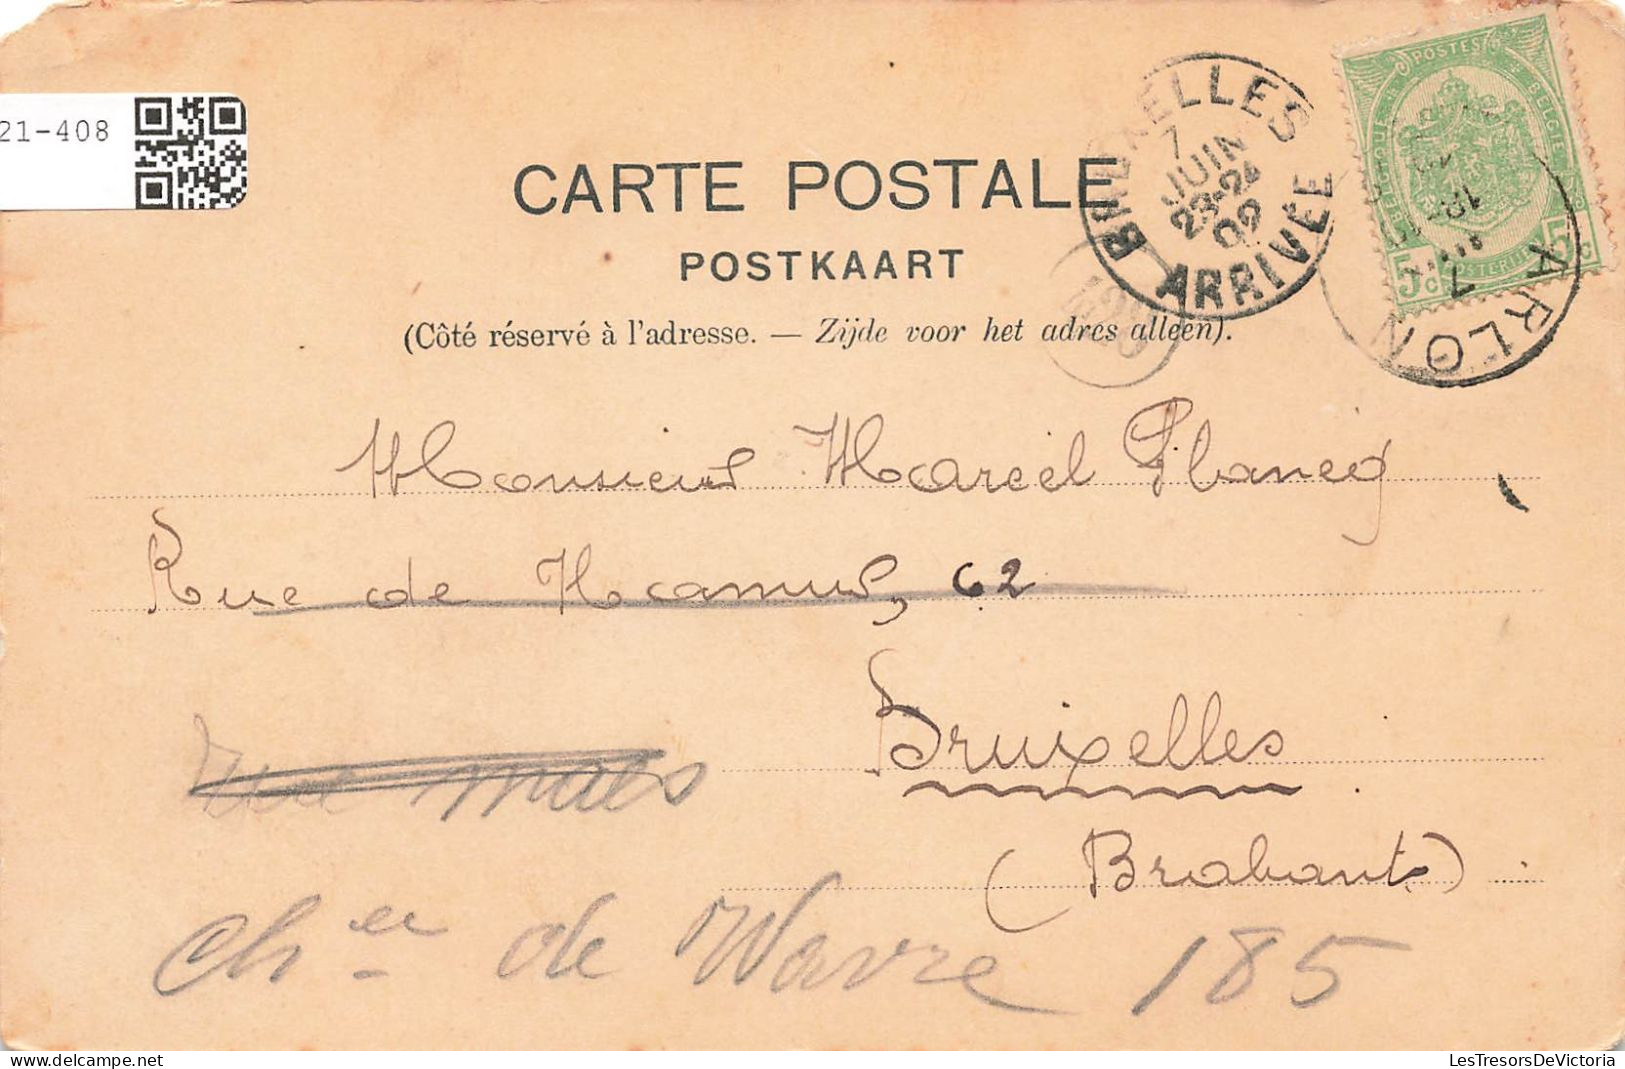 21-408
CARTE POSTALE
POSTKAART
(Côté réservé à l'adresse. — Zijde voor het adres alleen).
BRUXELLES
7
JUIN
23-24
09
ARRIVÉE
POSTES
BELGIQUE
BELGIE
POSTERIJEN
5c
5c
ARLON
7
Monsieur Marcel Plancq
Rue de Namur, 62
Bruxelles
(Brabant)
Rue
Chée de Wavre 185
LesTresorsDeVictoria